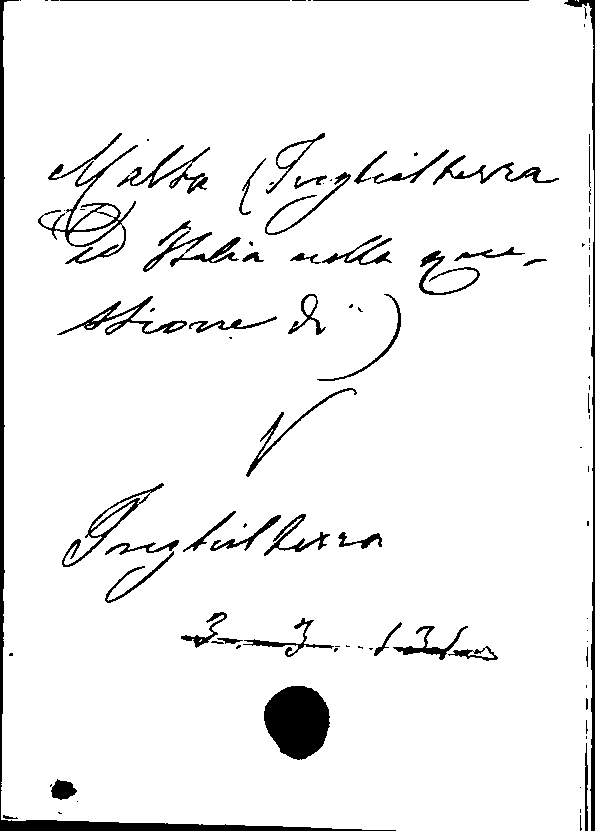 Malta (Inghilterra
ed Italia nella que-
stione di)
V
Inghilterra
3. 3. 131